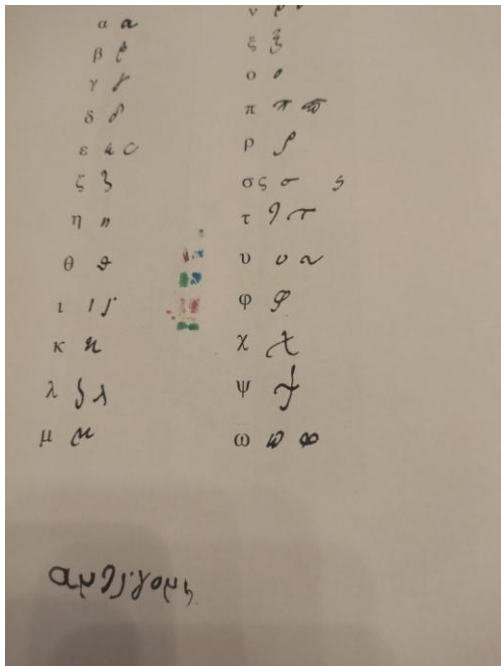 α α
β β
γ γ
δ δ
ε ε ε
ζ ζ
η η
θ θ
ι ι ι
κ κ
λ λ λ
μ μ
ν ν ν
ξ ξ
ο ο
π π π
ρ ρ
σς σ ς
τ τ τ
υ υ υ
φ φ
χ χ
ψ ψ
ω ω ω
αντιγονη